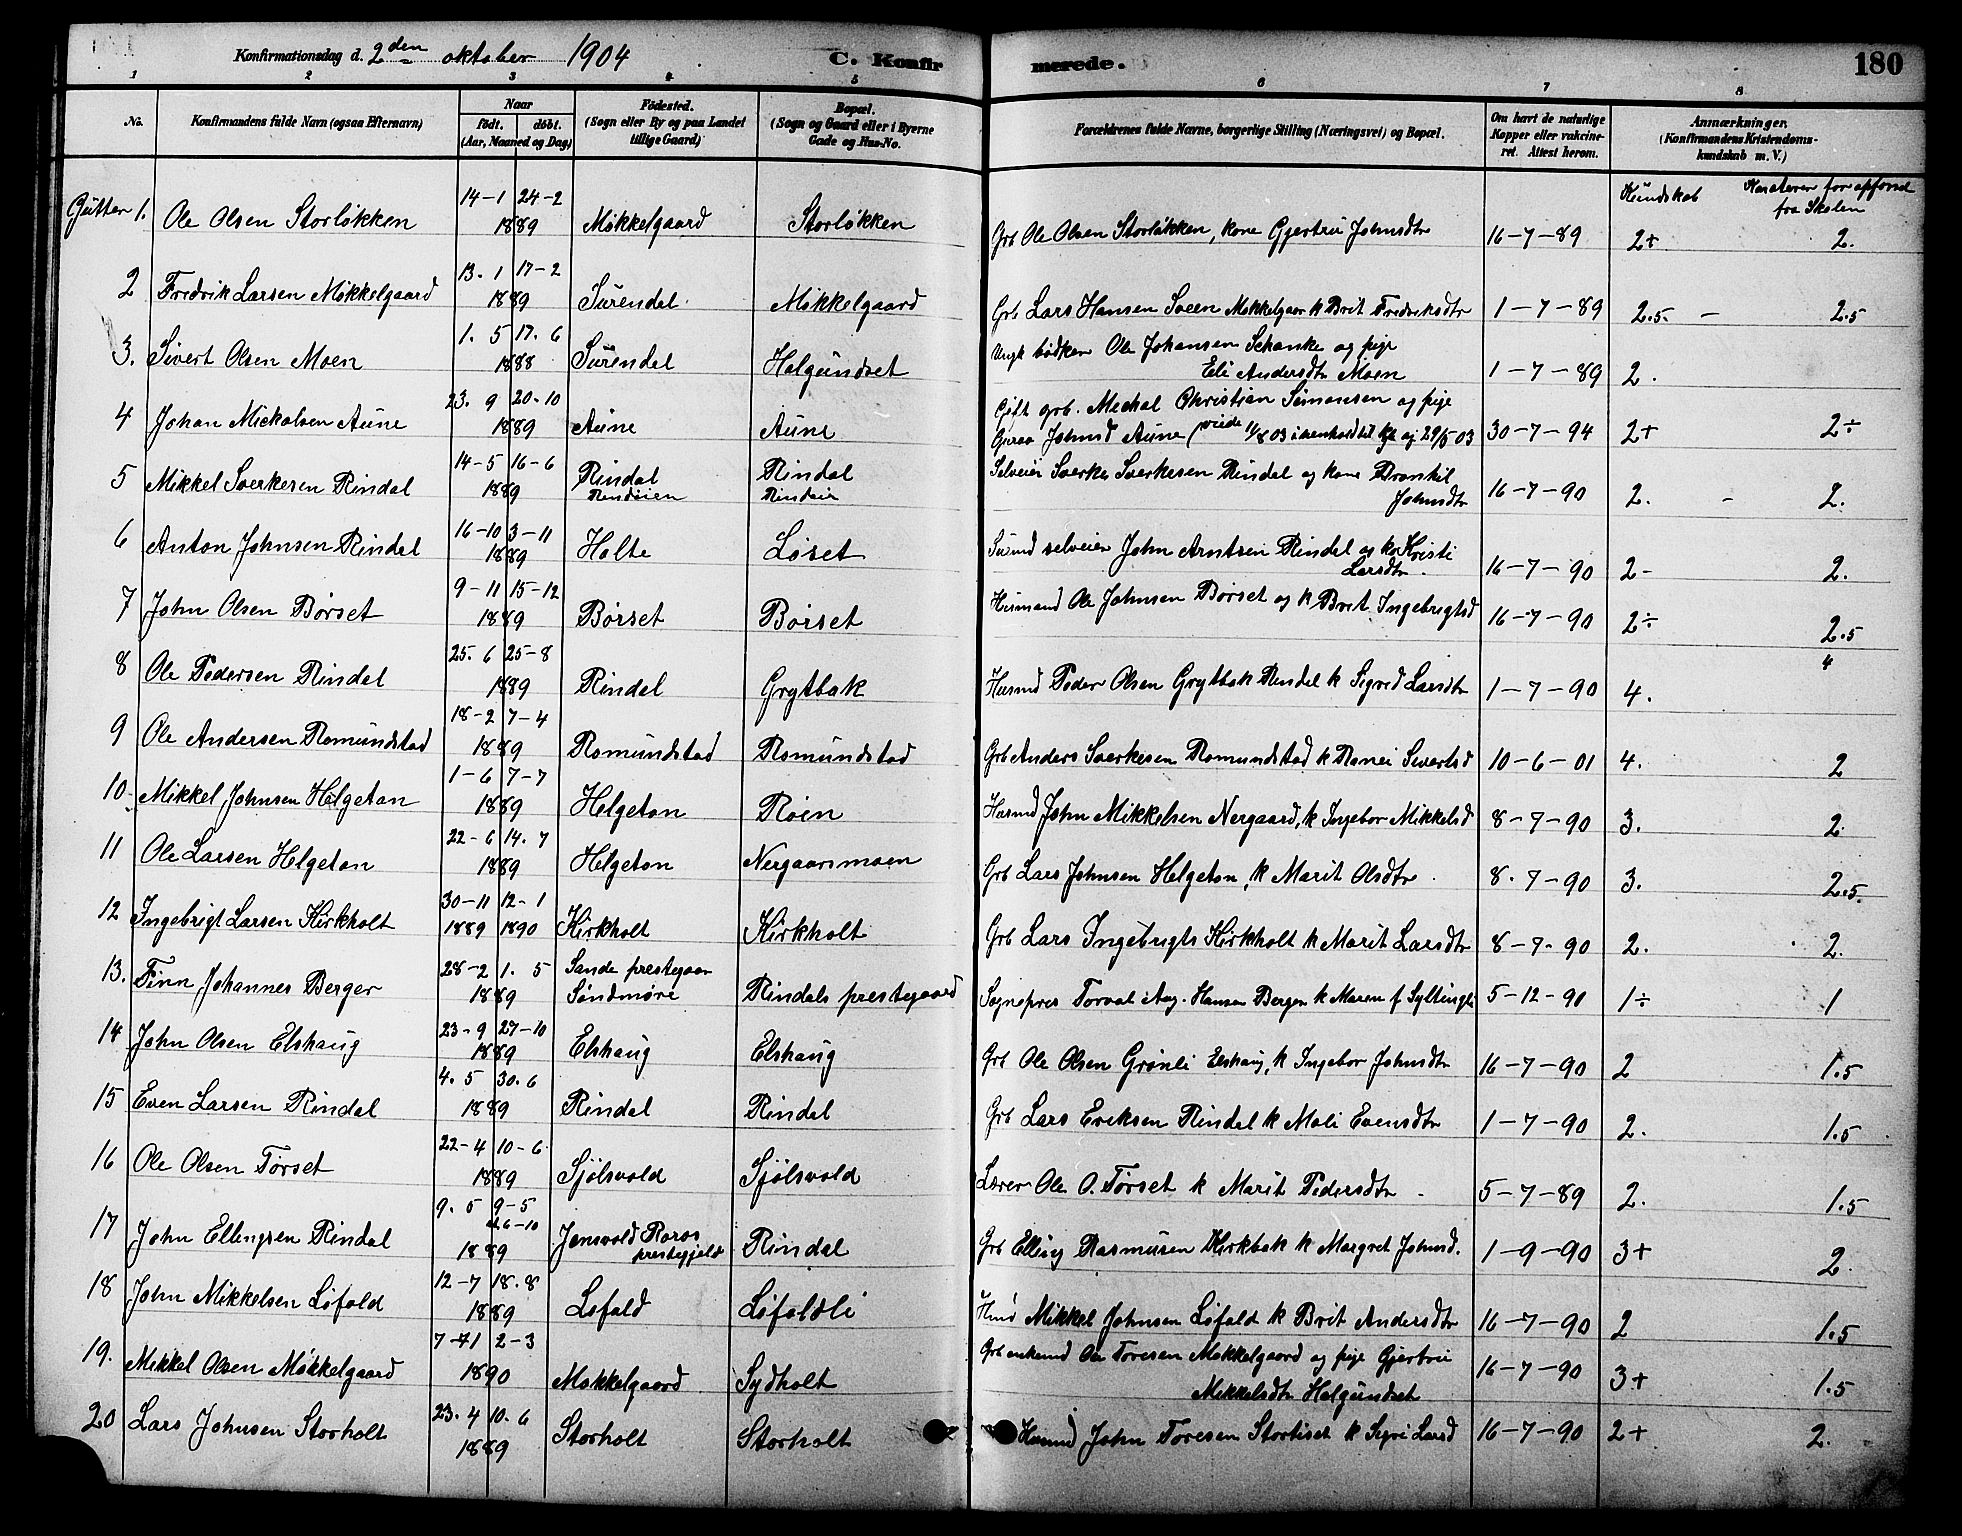 Konfirmationsdag d. 2den oktober 1904 C. Konfirmerede. 180
1 2 3 4 5 6 7 8
No. Konfirmandens fulde Navn (ogsaa Efternavn) Naar født. døbt. (Aar, Maaned og Dag) Fødested. (Sogn eller By og paa Landet tillige Gaard) Bopæl. (Sogn og Gaard eller i Byerne Gade og Hus-No. Forældrenes fulde Navne, borgerlige Stilling (Næringsvei) og Bopæl. Om havt de naturlige Kopper eller vakcineret. Attest herom. Anmærkninger, (Konfirmandens Kristendomskundskab m. V.)
Kundskab Karakterer for opførsel fra Skolen
Gutter 1. Ole Olsen Storløkken 14-1 24-2 1889 Møkkelgaard Storløkken Grb Ole Olsen Storløkken, kone Gjertru Johnsdtr 16-7-89 2+ 2.
2 Fredrik Larsen Møkkelgaard 13. 1 17-2 1889 Surendal Mikkelgaard Grb Lars Hansen Sveen Møkkelgaar k Brit Fredriksdtr 1-7-89 2.5. - 2.5
3. Sivert Olsen Moen 1. 5 17. 6 1888 Surendal Halgundset Ungk bødker Ole Johansen Schanke og pige Eli Andersdtr Moen 1-7-89 2.
4 Johan Mickalsen Aune 23. 9 20-10 1889 Aune Aune Gift grb. Mechal Christian Simonsen og pige Guraa Johnsd Aune 30-7-94 2+ 2÷
5 Mikkel Sverkesen Rindal 14-5 16-6 1889 Rindal Rindøien Rindal Rindøien Selveier Sverke Sverkesen Rindal og kone Brønhil Johnsdtr 16-7-90 2. - 2.
6 Anton Johnsen Rindal 16-10 3-11 1889 Holte Løset Husmd selveier John Arntsen Rindal og ko Kristi Larsdtr. 16-7-90 2- 2.
7 John Olsen Børset 9-11 15-12 1889 Børset Børset Husmand Ole Johnsen Børset og k Brit Ingebrigtsd 16-7-90 2÷ 2.5
8 Ole Pedersen Rindal 25. 6 25-8 1889 Rindal Grytbak Husmd Peder Olsen Grytbak Rindal k Sigrid Larsdtr 1-7-90 4. 4
9 Ole Andersen Romundstad 18-2 7-4 1889 Romundstad Romundstad Grb Anders Sverkesen Romundstad k Ranei Sivertsd 10-6-01 4. 2
10. Mikkel Johnsen Helgeton 1-6 7-7 1889 Helgeton Røen Husmd John Mikkelsen Nergaard, k Ingebor Mikkelsd 8-7-90 3. 2.
11 Ole Larsen Helgeton 22-6 14. 7 1889 Helgeton Nergaarsmoen Grb Lars Johnsen Helgeton, k Marit Olsdtr. 8. 7-90 3. 2.5.
12 Ingebrigt Larsen Kirkholt 30-11 1889 12-1 1890 Kirkholt Kirkholt Grb Lars Ingebrigts Kirkholt k Marit Larsdtr 8-7-90 2. 2.
13. Finn Johannes Berger 28-2 1. 5 1889 Sande prestegaar Søndmøre Rindals prestegaard Sogneprest Torval Aug. Hansen Berger k Maren f Syltingli 5-12-91 1÷ 1
14 John Olsen Elshaug 23-9 27-10 1889 Elshaug Elshaug Grb Ole Olsen Grønli Elshaug, k Ingebor Johnsdtr 16-7-90 2 1.5
15 Even Larsen Rindal 4. 5 30. 6 1889 Rindal Rindal Grb Lars Eriksen Rindal k Mali Evensdtr 1-7-90 2. 1.5
16 Ole Olsen Tørset 22-4 10-6. 1889 Sjølsvold Sjølsvold Lærer Ole O. Tørset k Marit Pedersdtr. 5-7-89 2. 1.5
17 John Ellingsen Rindal 9. 5 9-5 6-10 1889 Jonsvold Røros prestegjeld Rindal Grb Elling Rasmusen Kirkbak k Margret Johnsd. 1-9-90 3+ 2.
18 John Mikkelsen Løfald 12-7 18. 8 1889 Lofald Løfaldli Hmd Mikkel Johnsen Løfald k Brit Andersdtr 16-7-90 2 1.5
19. Mikkel Olsen Møkkelgaard 7-1 2-3 1890 Møkkelgaard Sydholt Grb enkemd Ole Toresen Møkkelgaard og pige Gjertrui Mikkelsdtr Halgundset 16-7-90 3+ 1.5
20 Lars Johnsen Storholt 23. 4 10. 6 1889 Storholt Storholt Husmd John Toresen Stortiset k Sigri Larsd 16-7-90 2+ 2.